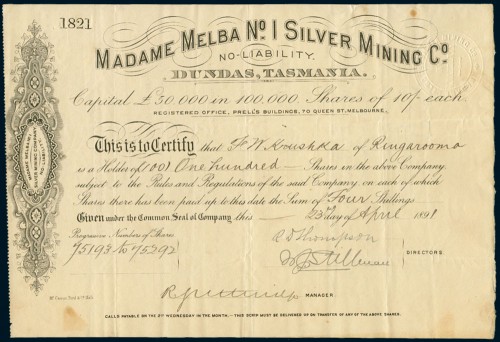 1821
MADAME MELBA No. 1 SILVER MINING Co.
NO-LIABILITY.
DUNDAS, TASMANIA.
Capital £50,000 in 100,000 Shares of 10/- each.
REGISTERED OFFICE, PRELL'S BUILDINGS, 70 QUEEN ST. MELBOURNE.
This is to Certify that F W Koushka of Ringarooma
is a Holder of 100 One hundred Shares in the above Company
subject to the Rules and Regulations of the said Company on each of which
Shares there has been paid up to this date the Sum of Four Shillings
Given under the Common Seal of Company this 23 day of April 1891
Progressive Numbers of Shares
75193 to 75292
R D Thompson
DIRECTORS
MANAGER
CALLS PAYABLE ON THE 2ND WEDNESDAY IN THE MONTH.—THIS SCRIP MUST BE DELIVERED UP ON TRANSFER OF ANY OF THE ABOVE SHARES.
MADAME MELBA No. 1
SILVER MINING COMPANY